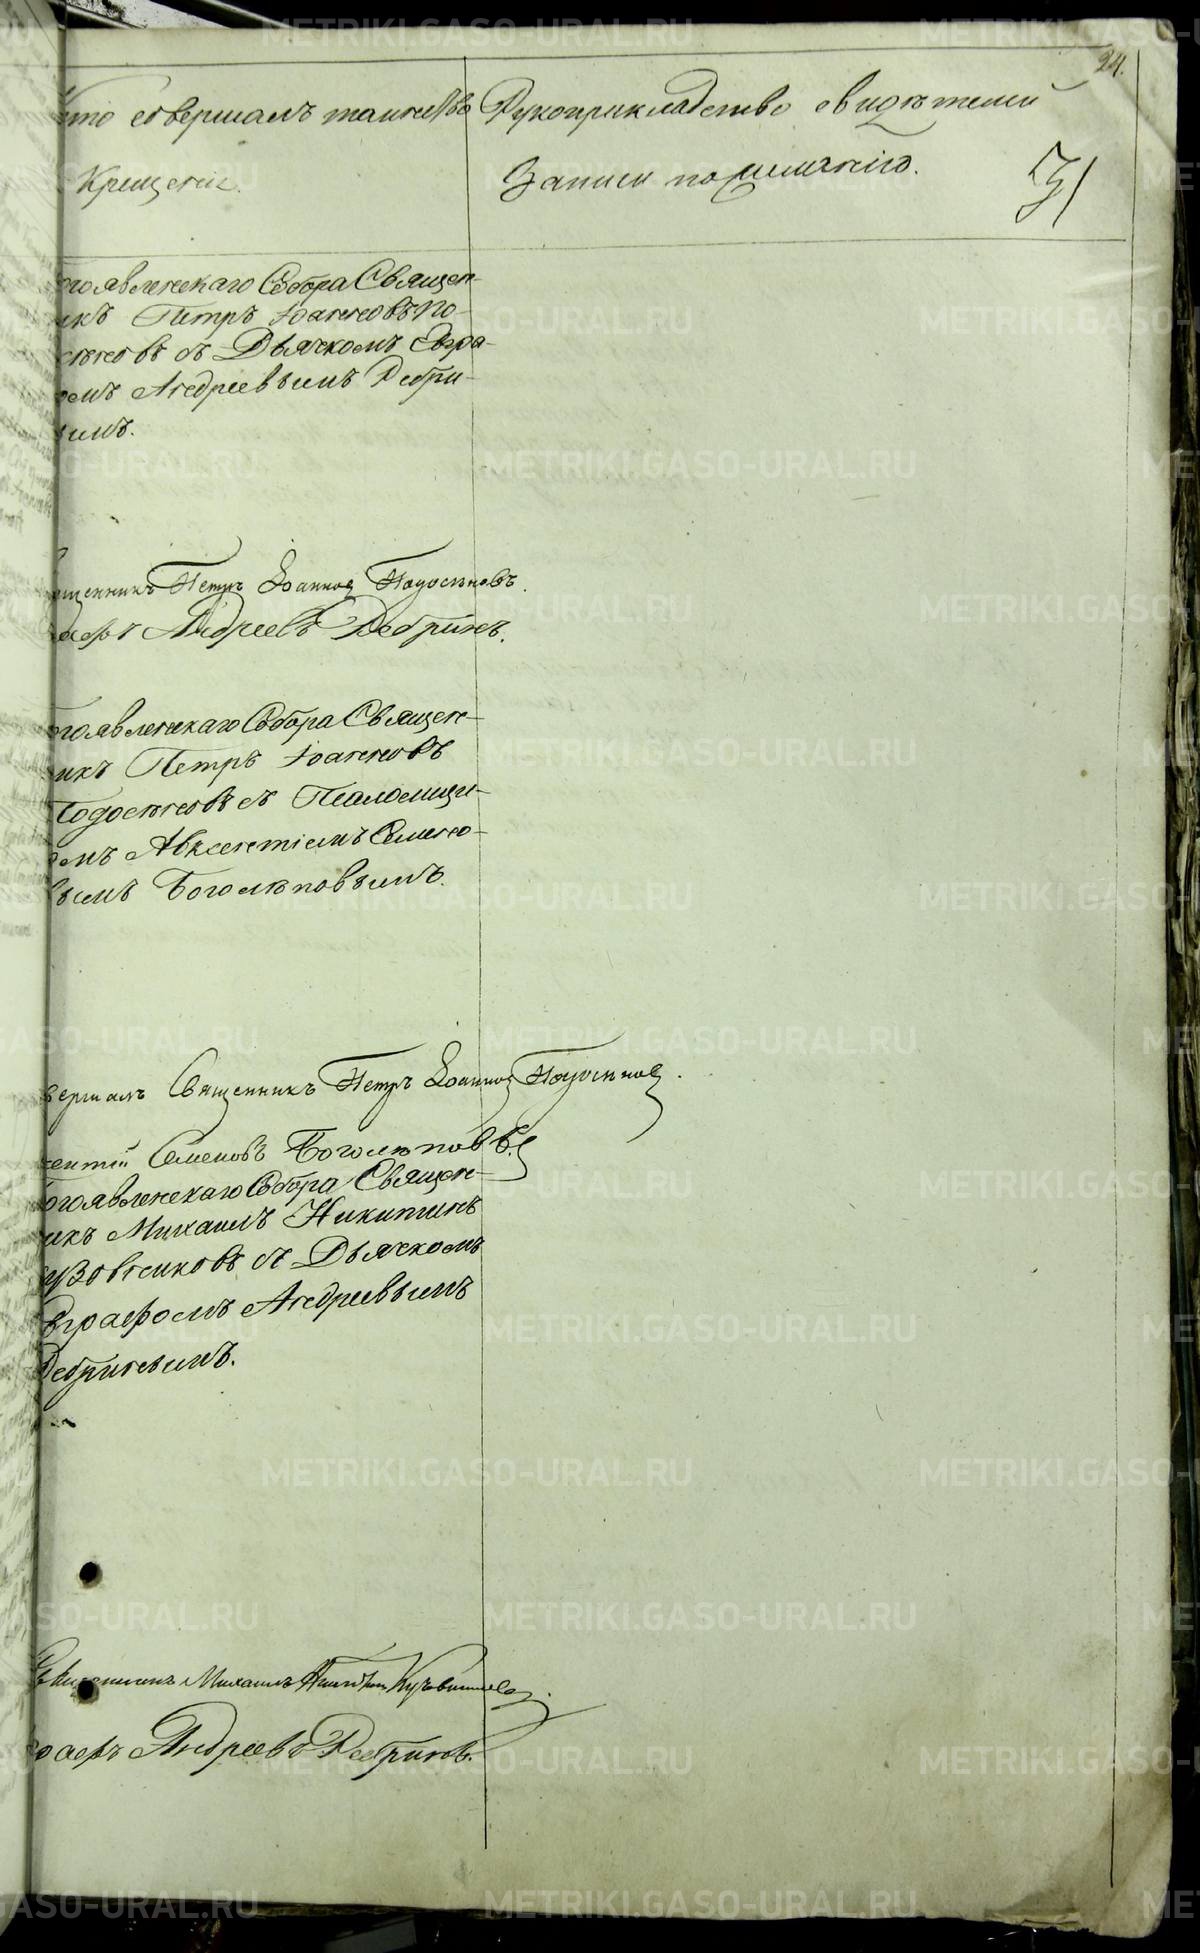 24.
кто совершалъ таинство
Крещенiе.
Рукоприкладство свидѣтелей
Записи по желанiю.
31
огоявленскаго Собора Священ-
икъ Петръ Іоанновъ По-
сѣновъ съ Дьячкомъ Евгра-
омъ Андреевымъ Ребри-
ымъ.
ященникъ Петръ Іоанновъ Подосѣновъ.
рафъ Андреевъ Ребринъ.
огоявленскаго Собора Священ-
икъ Петръ Іоанновъ
Подосѣновъ съ Псаломщи-
омъ Авксентіемъ Семено-
вымъ Боголѣповымъ.
вершалъ Священникъ Петръ Іоанновъ Подосѣновъ.
сентій Семеновъ Боголѣповъ.
огоявленскаго Собора Священ-
икъ Михаилъ Никитинъ
узовниковъ съ Дьячкомъ
Евграфомъ Андреевымъ
Ребринымъ.
Михаилъ Никитинъ
рафъ Андреевъ Ребринъ.
METRIKI.GASO-URAL.RU